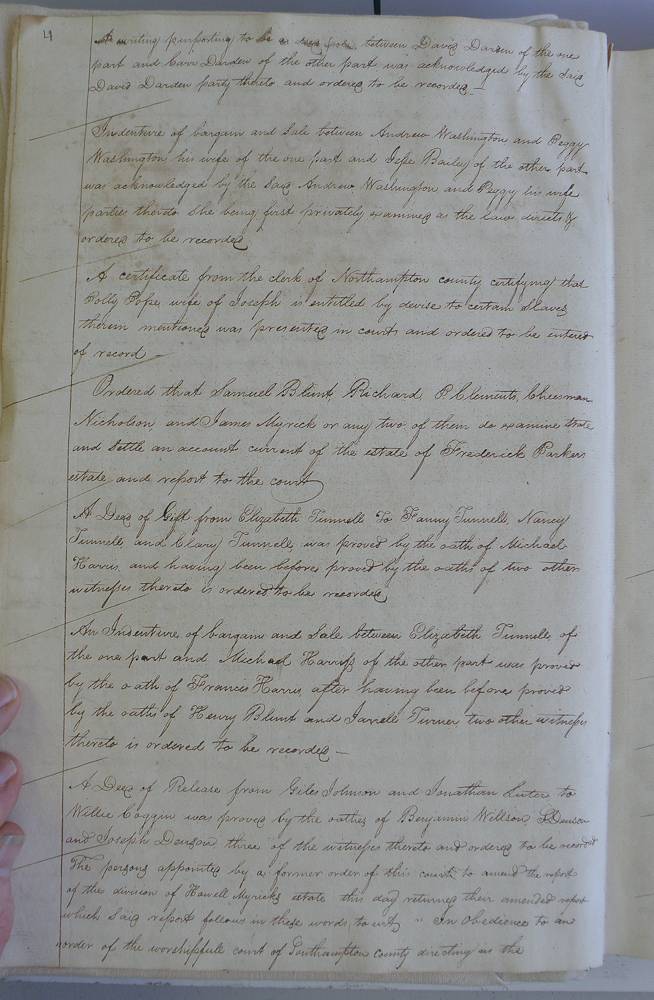 4
A writing purporting to be a between David Darden of the one
part and Carr Darden of the other part was acknowledged by the said
David Darden party thereto and ordered to be recorded —
Indenture of bargain and Sale between Andrew Washington and Peggy
Washington his wife of the one part and Jesse Bailey of the other part
was acknowledged by the Said Andrew Washington and Peggy his wife
parties thereto She being first privately examined as the law directs &
ordered to be recorded
A certificate from the clerk of Northampton county certifying that
Polly Pope wife of Joseph is entitled by devise to certain Slaves
therein mentioned was presented in court and ordered to be entered
of record —
Ordered that Samuel Blunt, Richard P Clements, Cheesman
Nicholson and James Myrick or any two of them do examine state
and Settle an account current of the estate of Frederick Parkers
estate and report to the court
A Deed of Gift from Elizabeth Tunnell To Fanny Tunnell, Nancy
Tunnell, and Clary Tunnell, was proved by the oath of Michael
Harris, and having been before proved by the oaths of two other
witnesses thereto is ordered to be recorded
An Indenture of bargain and Sale between Elizabeth Tunnell of
the one part and Michael Harriss of the other part was proved
by the oath of Francis Harris after having been before proved
by the oaths of Henry Blunt and Jarrell Turner two other witnesses
thereto is ordered to be recorded —
A Deed of Release from Giles Johnson and Jonathan Luter to
Willie Coggin was proved by the oathes of Benjamin Willson, Denson
and Joseph Denson three of the witnesses thereto and ordered to be recorded
The persons appointed by a former order of this court to amend the report
of the division of Howell Myricks estate this day returned their amended report
which Said report follows in these words to wit, " In Obedience to an
order of the worshipfull court of Southampton County directing us the